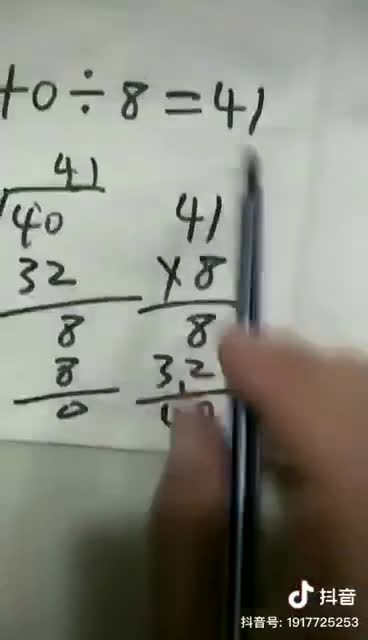 40÷8=41
41
40
32
8
8
0
41
×8
8
32
40
抖音
抖音号: 1917725253